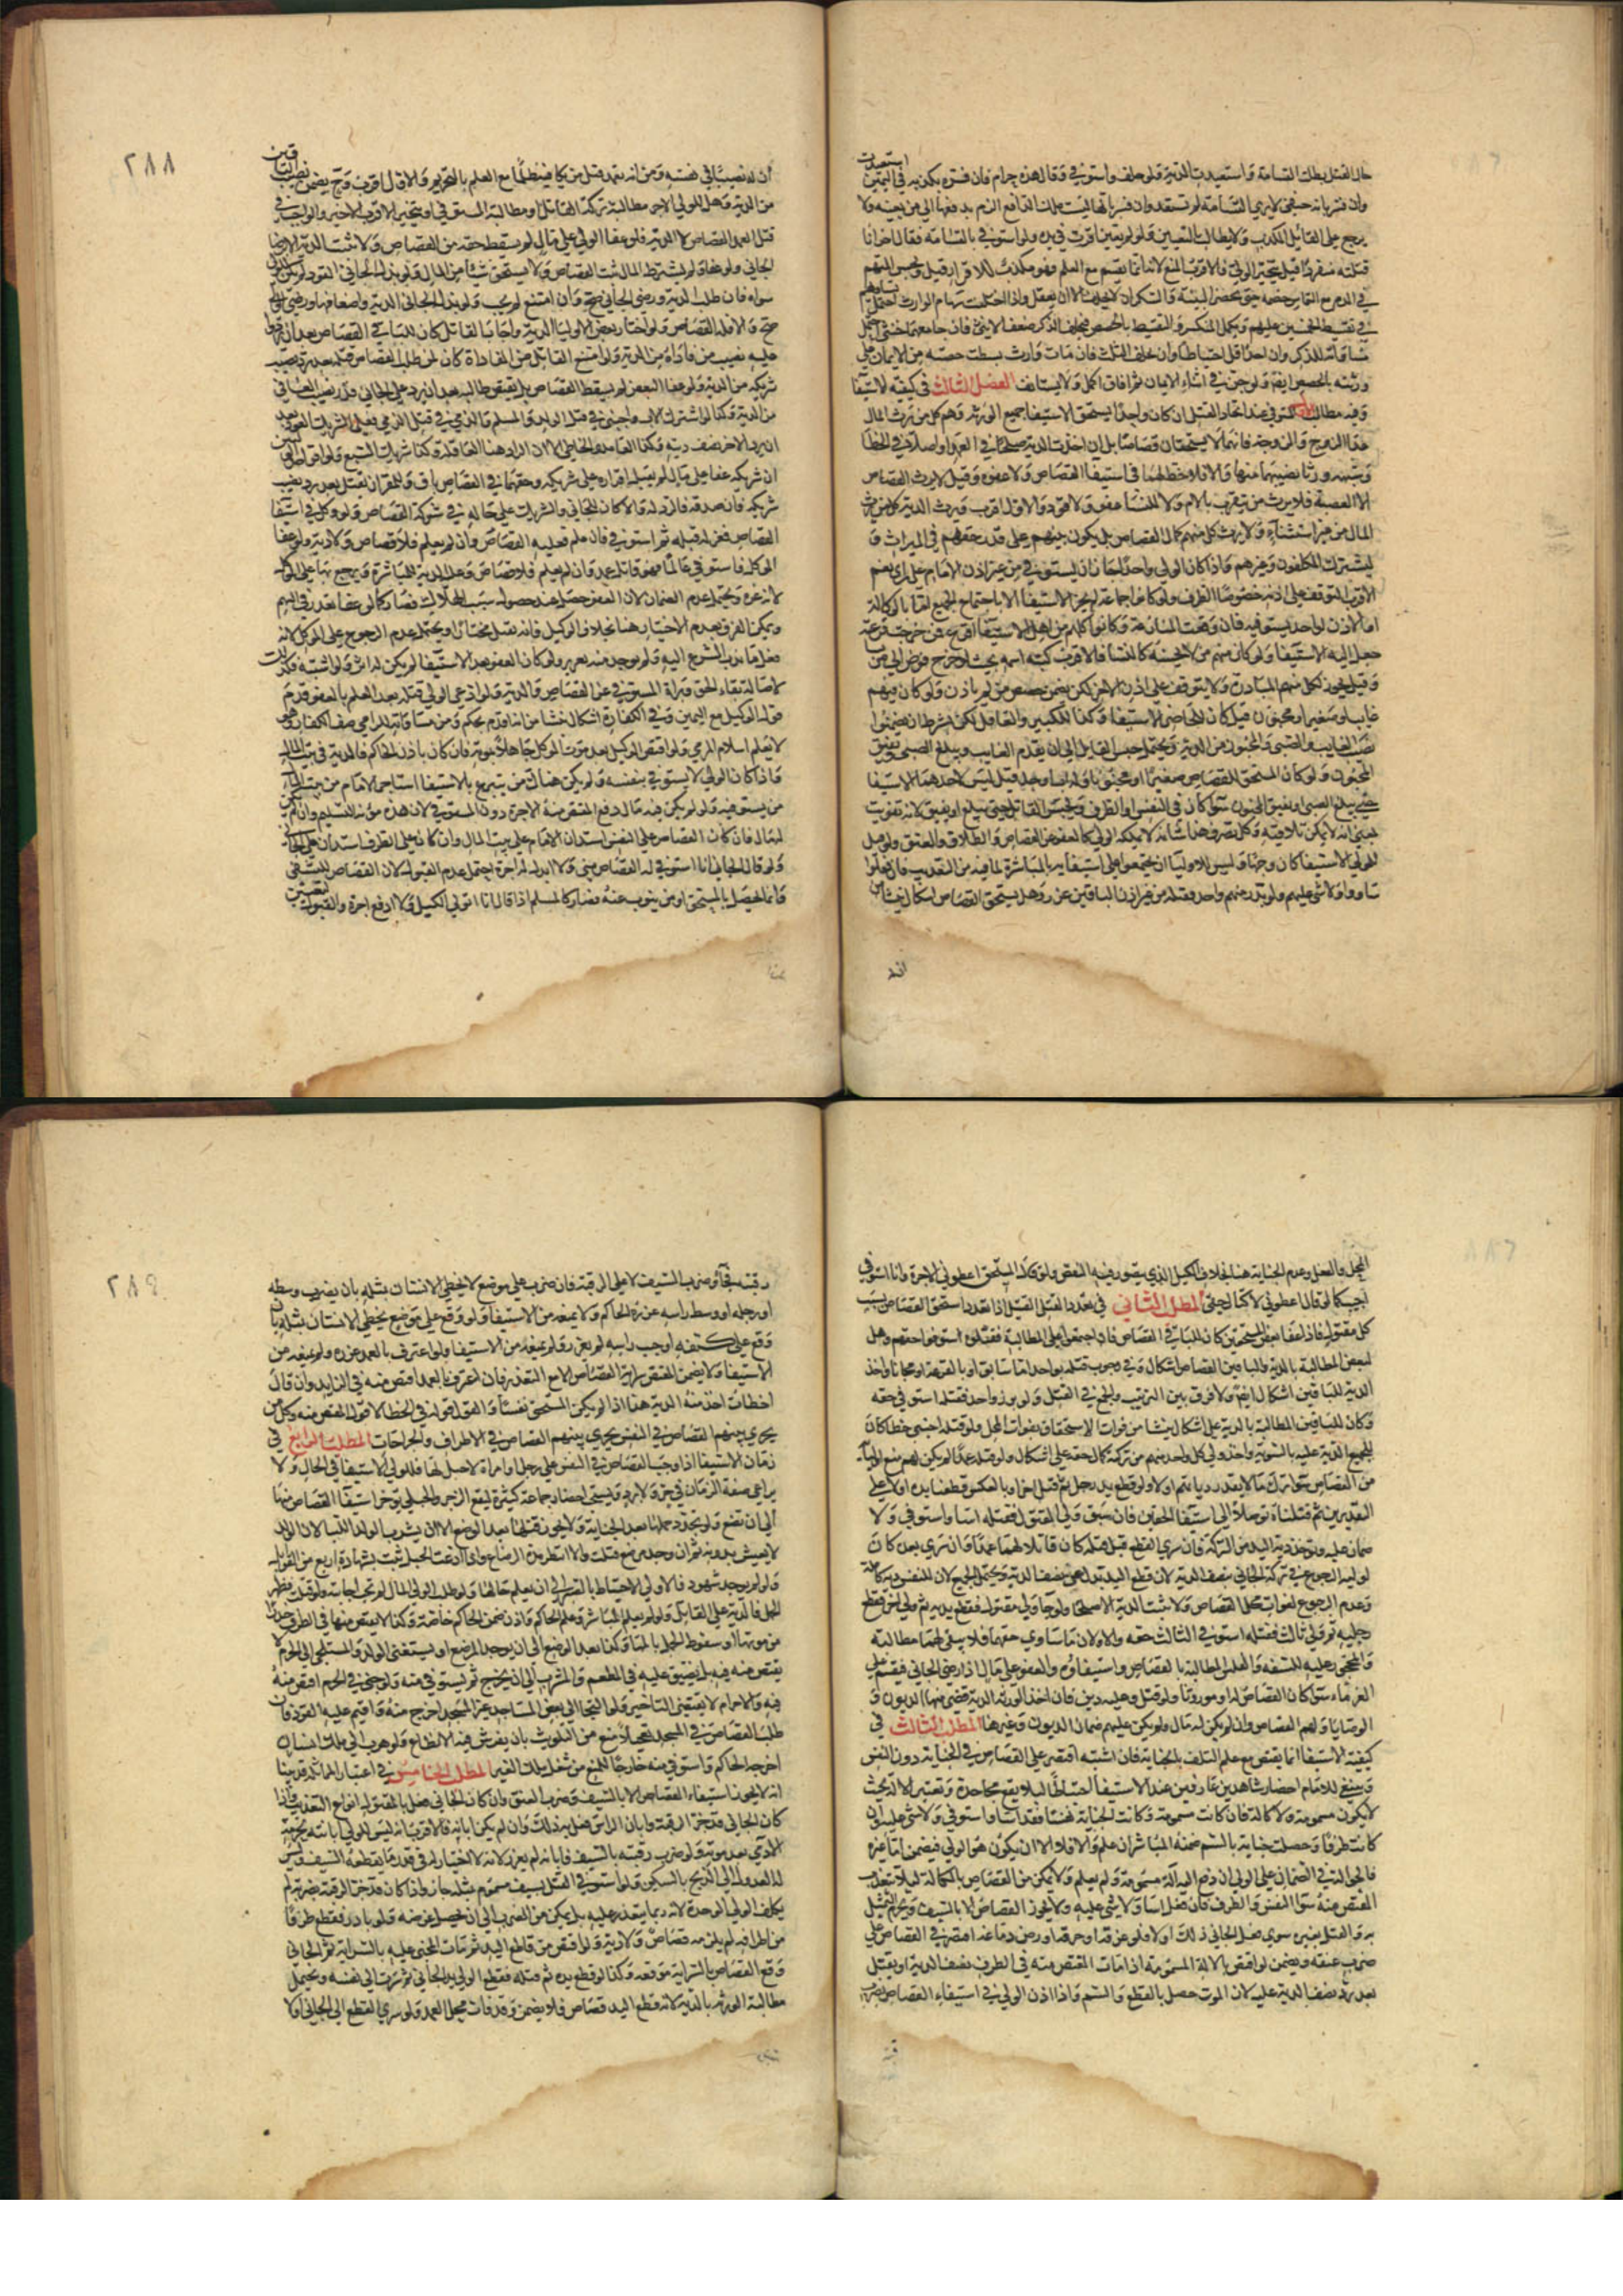 حال القتل بطلت القسامة واستعيدت الدية ولو حلف واستوفى وقال هذه حرام فان فسره بكذبه في اليمين استعيدت
وان فسر بانه حنفي لا يرى القسامة لم تستعد وان فسر بانها ليست ملك الدافع الزم بدفعها الى من يعينه ولا
يرجع على القابل المكذب ولا يطالب بالتعيين ولو لم يتعين اقرت في يده ولو استوفى بالقسامة فقال اخر انا
قتلته منفردا قيل يتخير الولي والاقرب المنع لانه انما يقسم مع العلم فهو مكذب للاقرار قيل ويحبس المتهم
في الدم مع التماس خصمه حتى يحضر البينة والسكران لا يحلف الا ان يعقل واذا اختلفت سهام الوارث احتمل تساويهم
في تقسيط الخمسين عليهم ويكمل المنكسر والتقسيط بالحصص فيحلف الذكر ضعف الانثى فان جامعهما خنثى احتمل
مساواته للذكر وان اخذ اقل احتياطا وان يحلف الثلث فان مات وارث بسطت حصته من الايمان على
ورثته بالحصص ايضا ولو جن في اثناء الايمان ثم افاق اكمل ولا يستانف الفصل الثالث في كيفية الاستيفا
وفيه مطالب ا المستوفي عند اتحاد القتيل ان كان واحدا يستحق الاستيفا جميع الورثة وهم كل من يرث المال
عدا الزوج والزوجة فانهما لا يستحقان قصاصا بل ان اخذت الدية صلحا في العمد او اصلا في الخطا
وشبهه ورثا نصيبهما منها والا فلا حظ لهما في استيفا القصاص ولا عفوه وقيل لا يرث القصاص
الا العصبة فلا يرث من يتقرب بالام ولا للنسا عفو ولا قود والاول اقرب ويرث الدية كل من يرث
المال من غير استثناء ولا يرث كل منهم كمال القصاص بل يكون بينهم على قدر حقهم في الميراث و
يشترك المكلفون وغيرهم واذا كان الولي واحدا جاز ان يستوفي من غير اذن الامام على راي نعم
الاقرب التوقف على اذنه خصوصا الطرف ولو كانوا جماعة لم يجز الاستيفا الا باجتماع الجميع اما بالوكالة
او بالاذن لواحد يستوفيه فان وقعت المنازعة وكانوا كلهم من اهل الاستيفا اقرع فمن خرجت قرعته
جعل اليه الاستيفا ولو كان منهم من لا يحسنه كالنسا فالاقرب كتبة اسمه بحيث لو خرج فوض الى من شا
وقيل يجوز لكل منهم المبادرة ولا يتوقف على اذن الاخر لكن يضمن حصص من لم ياذن ولو كان فيهم
غايب او صغير او مجنون قيل كان للحاضر الاستيفا وكذا للكبير والعاقل لكن بشرط ان يضمنوا
نصيب الغايب والصبي والمجنون من الدية ويحتمل حبس القاتل الى ان يقدم الغايب ويبلغ الصبي ويفيق
المجنون ولو كان المستحق للقصاص صغيرا او مجنونا وله اب او جد قيل ليس لاحدهما الاستيفا
حتى يبلغ الصبي او يفيق المجنون سواء كان في النفس او الطرف ويحبس القاتل حتى يبلغ او يفيق لانه تفويت
بمعنى انه لا يمكن تلافيه وكل تصرف هذا شانه لا يملكه الولي كالعفو عن القصاص والطلاق والعتق ولو قيل
للولي الاستيفا كان وجها وليس للاوليا ان يجتمعوا على استيفايه بالمباشرة لما فيه من التعذيب فان فعلوا
اساوا ولا شي عليهم ولو بدر منهم واحد فقتله من غير اذن الباقين عزر وهل يستحق القصاص اشكال ينشا من
ان له
ان له نصيبا في نفسه ومن انه تعمد قتل من يكافيه ظلما مع العلم بالتحريم والاول اقرب وح يضمن نصيب الباقين
من الدية وهل للولي الاخر مطالبة تركة القاتل او مطالبة المستوفي او يتخير الاقرب الاخير والواجب في
قتل العمد القصاص لا الدية فلو عفا الولي على مال لم يسقط حقه من القصاص ولا تثبت الدية الا برضا
الجاني ولو عفا ولم يشترط المال ثبت القصاص ولا يستحق شيا من المال ولو بذل الجاني القود لم يكن للولي
سواه فان طلب الدية ورضي الجاني صح وان امتنع لم يجب ولو بذل الجاني الدية واضعافها ورضي الولي
صح والا فله القصاص ولو اختار بعض الاوليا الدية واجاب القاتل كان للباقي القصاص بعد ان يردوا
عليه نصيب من فاداه من الدية ولو امتنع القاتل من المفاداة كان لمن طلب القصاص قتله بعد رد نصيب
شريكه من الدية ولو عفا البعض لم يسقط القصاص بل يقتص طالبه بعد ان يرد على الجاني قدر نصيب العافي
من الدية وكذا لو اشترك الاب واجنبي في قتل الولد والمسلم والذمي في قتل الذمي فعلى الشريك القود بعد
ان يرد الاخر نصف ديته وكذا العامد والخاطئ الا ان الراد هنا العاقلة وكذا شريك السبع ولو اقر احد الوليين
ان شريكه عفا على مال لم يقبل اقراره على شريكه وحقهما في القصاص باق وللمقر ان يقتل بعد رد نصيب
شريكه فان صدقه فالرد له والا كان للجاني والشريك على حاله في شركة القصاص ولو وكل في استيفا
القصاص فعزله قبله ثم استوفى فان علم فعليه القصاص وان لم يعلم فلا قصاص ولا دية ولو عفا
الموكل فاستوفى عالما فهو قاتل عمد وان لم يعلم فلا قصاص وعليه الدية للمباشرة ويرجع بها على الموكل
لانه غره ويحتمل عدم الضمان لان العفو حصل عند حصول سبب الهلاك فصار كما لو عفا بعد رمي السهم
ويمكن الفرق بعدم الاختيار هنا بخلاف الوكيل فانه يقتل مختارا ويحتمل عدم الرجوع على الموكل لانه
فعل ما ندب الشرع اليه ولم يوجد منه تغرير ولو كان العفو بعد الاستيفا لم يكن له اثر ولو اشتبه فكذلك
لاصالة بقاء الحق وبراة المستوفي عن القصاص والدية ولو ادعى الولي قتله بعد العلم بالعفو قدم
قول الوكيل مع اليمين وفي الكفارة اشكال ينشا من انه اقدم بحكم ومن مساواته للرامي صف الكفار وهو
لا يعلم اسلام المرمي ولو اقتص الوكيل بعد موت الموكل جاهلا بموته فان كان باذن الحاكم فالدية في بيت المال
واذا كان الولي لا يستوفي بنفسه ولم يكن هناك من يتبرع بالاستيفا استاجر الامام من بيت المال
من يستوفيه ولو لم يكن فيه مال دفع المقتص منه الاجرة دون المستوفي لان هذه مؤنة التسليم وان لم يكن
له مال فان كان القصاص على النفس استدان الامام على بيت المال وان كان على الطرف استدان على الجاني
ولو قال الجاني انا استوفي له القصاص مني ولا ابذل اجرة احتمل عدم القبول لان القصاص للتشفي
وانما يحصل بالمستحق او من ينوب عنه فصار كالمسلم اذا قال انا اتولى الكيل ولا ادفع اجرة والقبول لتعين
المحل والفعل وعدم الخيانة هنا بخلاف الكيل الذي يتصور فيه النقص ولو قال المستحق اعطوني الاجرة وانا استوفي
اجيب كما لو قال اعطوني لاكتال حقي المطلب الثاني في تعدد القتلى القتيل اذا تعدد استحق القصاص بسبب
كل مقتول فاذا عفا بعض المستحقين كان للباقي القصاص فاذا اجتمعوا على المطالبة فقتلوه استوفوا حقهم وهل
لبعض المطالبة بالدية وللباقين القصاص اشكال وفي وجوب قتله بواحد اما سابق او بالقرعة او مجانا واخذ
الدية للباقين اشكال ايضا ولا فرق بين الترتيب والجمع في القتل ولو بدر واحد فقتله استوفى حقه
وكان للباقين المطالبة بالدية على اشكال ينشا من فوات الاستحقاق بفوات المحل ولو قتله اجنبي خطا كان
للجميع الدية عليه بالسوية واخذ ولي كل واحد منهم من تركته كمال حقه على اشكال ولو قتله عمدا لم يكن لهم منع الاوليا
من القصاص سواء ترك ما لا يقدر ديتهم او لا ولو قطع يد رجل ثم قتل اخر او بالعكس قطعنا يده اولا على
التقديرين ثم قتلناه توصلا الى استيفا الحقين فان سبق ولي المقتول فقتله اسا واستوفى ولا
ضمان عليه وتوخذ دية اليد من التركة فان سرى القطع قبل قتله كان قاتلا لهما عمدا وان سرى بعده كان
لوليه الرجوع في تركة الجاني بنصف الدية لان قطع اليد بدل عن نصف الدية ويحتمل الجميع لان للنفس دية كاملة
وعدم الرجوع لفوات محل القصاص ولا تثبت الدية الا صلحا ولو جا ولي مقتول فقطع يديه ثم ولي اخر فقطع
رجليه ثم ولي ثالث فقتله استوفى الثالث حقه والاولان ما ساوى حقهما فلا يبقى لهما مطالبة
وللمحجور عليه للسفه والفلس المطالبة بالقصاص واستيفاؤه والعفو على مال اذا رضي الجاني فيقسم على
الغرماء سواء كان القصاص له او موروثا ولو قتل وعليه دين فان اخذ الورثة الدية قضي منها الديون و
الوصايا ولهم القصاص وان لم يكن له مال ولم يكن عليهم ضمان الديون وغيرها المطلب الثالث في
كيفية الاستيفا انما يقتص مع علم التلف بالجناية فان اشتبه اقتصر على القصاص في الجناية دون النفس
وينبغي للامام احضار شاهدين عارفين عند الاستيفا احتياطا ليلا يقع مجاحدة وتعتبر الالة بحيث
لا يكون مسمومة ولا كالة فان كانت مسمومة وكانت الجناية نفسا فقد اسا واستوفى ولا شي عليه وان
كانت طرفا وحصلت جناية بالسم ضمنه المباشر ان علم والا فلا الا ان يكون هو الولي فيضمن اما غيره
فالحوالة في الضمان على الولي ان دفع اليه الة مسمومة ولم يعلم ولا يمكن من القصاص بالكالة ليلا يتعذب
المقتص منه سواء النفس والطرف فان فعل اسا ولا شي عليه ولا يجوز القصاص الا بالسيف ويحرم التمثيل
به والقتل بغيره سواء فعل الجاني ذلك او لا فلو غرقه او حرقه او رض دماغه اقتصر في القصاص على
ضرب عنقه ويضمن لو اقتص بالالة المسمومة اذا مات المقتص منه في الطرف نصف الدية او يقتل
بعد رد نصف الدية عليه لان الموت حصل بالقطع والسم واذا اذن الولي في استيفاء القصاص بضرب
رقبته
رقبته فجاء وضرب بالسيف لا على الرقبة فان ضرب على موضع لا يخطئ الانسان بمثله بان يضرب وسطه
او رجله او وسط راسه عزره الحاكم ولا يمنعه من الاستيفا ولو وقع على موضع يخطئ الانسان بمثله بان
وقع على كتفه او جنب راسه لم يعزر ولم يمنعه من الاستيفا ولو اعترف بالعمد عزره ولم يمنعه من
الاستيفا ولا يضمن المقتص سراية القصاص الا مع التعدي فان اعترف بالعمد اقتص منه في الزايد وان قال
اخطات اخذ منه الدية هذا اذا لم يكن المستحق نفسا والقول قوله في الخطا لا قول المقتص منه وكل من
يجري بينهم القصاص في النفس يجري بينهم القصاص في الاطراف والجراحات المطلب الرابع في
زمان الاستيفا اذا وجب القصاص في النفس على رجل او امراة لا حمل لها فللولي الاستيفا في الحال ولا
يراعى صفة الزمان في حر ولا برد ويستحب احضار جماعة كثيرة ليقع الزجر والحبلى يؤخر استيفا القصاص منها
الى ان تضع ولو تجدد حملها بعد الجناية ولا يجوز قتلها بعد الوضع الا ان يشرب الولد اللبا لان الولد
لا يعيش بدونه ثم ان وجد مرضع قتلت والا انتظر مدة الرضاع ولو ادعت الحبل ثبت بشهادة اربع من القوابل
ولو لم يوجد شهود فالاولى الاحتياط بالتربص الى ان يعلم حالها ولو طلب الولي المال لم تجب اجابته ولو قتلت فظهر
الحمل فالدية على القاتل ولو لم يعلم المباشر وعلم الحاكم واذن ضمن الحاكم خاصة وكذا لا يقتص منها في الطرف حذرا
من موتها او سقوط الحمل بالمها وكذا بعد الوضع الى ان يوجد المرضع او يستغني الولد والملتجئ الى الحرم لا
يقتص منه فيه بل يضيق عليه في المطعم والمشرب الى ان يخرج ثم يستوفى منه ولو جنى في الحرم اقتص منه
فيه والاحرام لا يقتضي التاخير ولو التجا الى بعض المساجد غير المسجد اخرج منه واقيم عليه القود فان
طلب القصاص في المسجد تعجيلا منع من التلويث بان يفرش فيه الانطاع ولو هرب الى ملك انسان
اخرجه الحاكم واستوفى منه خارجا للمنع من شغل ملك الغير المطلب الخامس في اعتبار المماثلة قد بينا
انه لا يجوز استيفاء القصاص الا بالسيف وضرب العنق وان كان الجاني فعل بالمقتول انواع التعذيب واذا
كان الجاني قد خز الرقبة وابان الراس فعل به ذلك وان لم يكن ابانه فالاقرب انه ليس للولي ابانته لحرمة
الادمي بعد موته ولو ضرب رقبته بالسيف فابانه لم يعزر لانه لا اختيار له في قدر ما يقطعه السيف وليس
له العدول الى الذبح بالسكين ولو استوفى القتل بسيف مسموم بمثله جاز واذا كان قد خز الرقبة بضربة لم
يكلف الولي الوحدة لانه ربما يتعذر عليه بل يمكن من الضرب الى ان يحصل غرضه ولو بادر فقطع طرفا
من اطرافه لم يلزمه قصاص ولا دية ولو اقتص من قاطع اليد ثم مات المجني عليه بالسراية ثم الجاني
وقع القصاص بالسراية موقعه وكذا لو قطع يده ثم قتله فقطع الولي يد الجاني ثم سرت الى نفسه ويحتمل
مطالبة الورثة بالدية لانه قطع اليد قصاص فلا يضمن وقد فات محل العمد ولو سرى القطع الى الجاني اولا